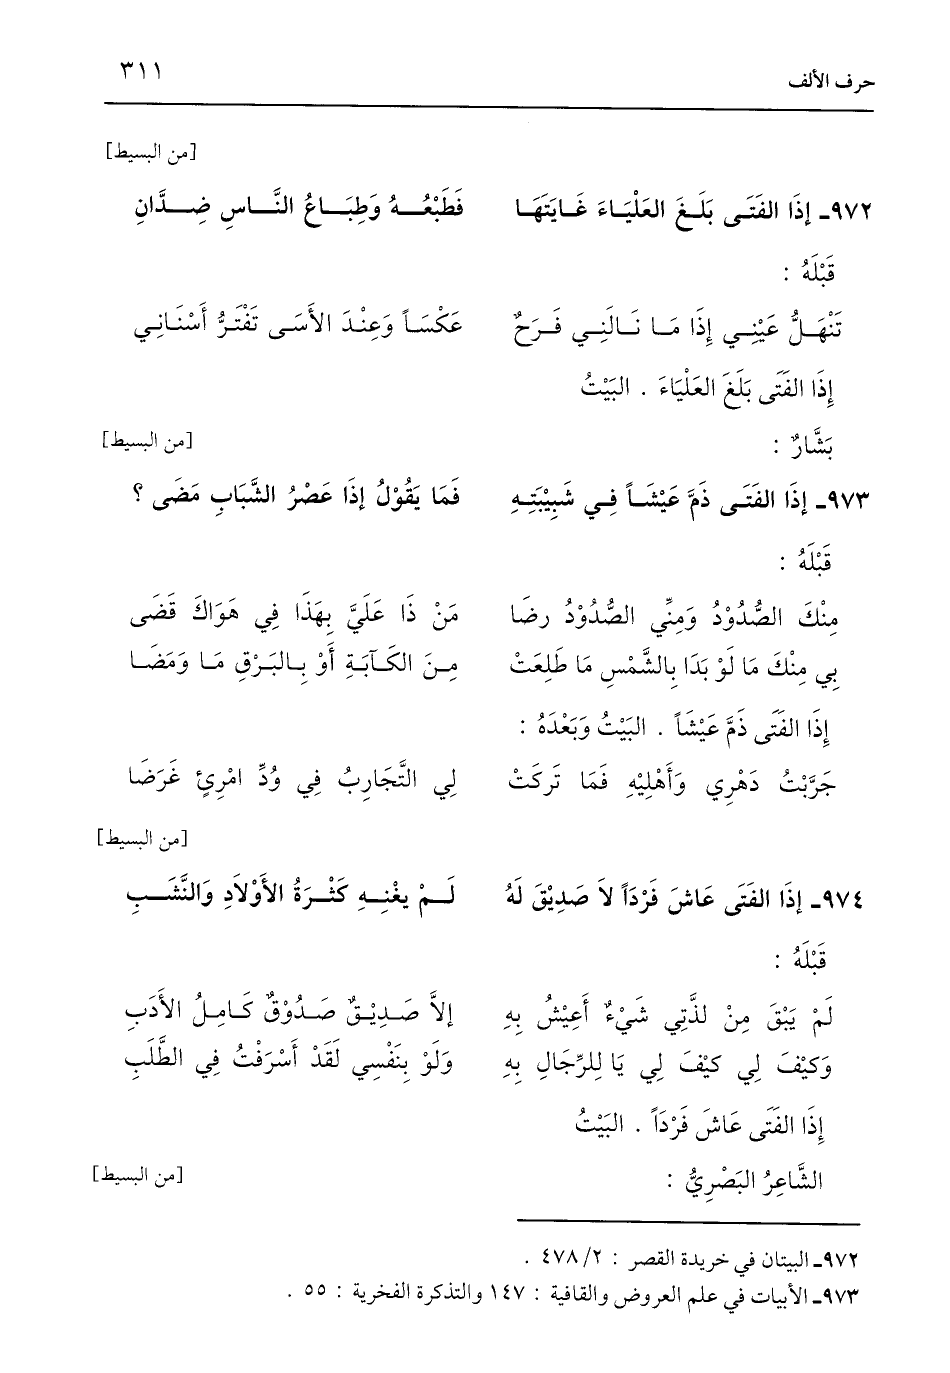 حرف الألف ٣١١
[من البسيط]
٩٧٢ـ إِذَا الفَتَـى بَلَـغَ العَلْيَـاءَ غَـايَتَهَـا فَطَبْعُـــهُ وَطِبَـــاعُ النَّـــاسِ ضِـــدَّانِ
قَبْلَهُ :
تَنْهَـلُّ عَيْنِـي إِذَا مَـا نَـالَنِـي فَـرَحٌ عَكْسَـاً وَعِنْـدَ الأَسَـى تَفْتَـرُّ أَسْنَـانِـي
إِذَا الفَتَى بَلَغَ العَلْيَاءَ . البَيْتُ
بَشَّارٌ : [من البسيط]
٩٧٣ـ إِذَا الفَتَـى ذَمَّ عَيْشَـاً فِـي شَبِيْبَتِـهِ فَمَا يَقُوْلُ إِذَا عَصْرُ الشَّبَابِ مَضَى ؟
قَبْلَهُ :
مِنْكَ الصُّدُوْدُ وَمِنِّي الصُّدُوْدُ رضَا مَنْ ذَا عَلَيَّ بِهَذَا فِي هَوَاكَ قَضَى
بِي مِنْكَ مَا لَوْ بَدَا بِالشَّمْسِ مَا طَلِعَتْ مِـنَ الكَـآبَـةِ أَوْ بِـالبَـرْقِ مَـا وَمَضَـا
إِذَا الفَتَى ذَمَّ عَيْشَاً . البَيْتُ وَبَعْدَهُ :
جَرَّبْتُ دَهْرِي وَأَهْلِيْهِ فَمَا تَركَتْ لِي التَّجَارِبُ فِي وُدِّ امْرِئٍ غَرَضَا
[من البسيط]
٩٧٤ـ إِذَا الفَتَى عَاشَ فَرْدَاً لاَ صَدِيْقَ لَهُ لَـمْ يغْنِـهِ كَثْـرَةُ الأَوْلاَدِ وَالنَّشَـبِ
قَبْلَهُ :
لَمْ يَبْقَ مِنْ لذَّتِي شَيْءٌ أَعِيْشُ بِهِ إِلاَّ صَـدِيْـقٌ صَـدُوْقٌ كَـامِـلُ الأَدَبِ
وَكيْفَ لِي كيْفَ لِي يَا لِلرِّجَالِ بِهِ وَلَوْ بِنَفْسِي لَقَدْ أَسْرَفْتُ فِي الطَّلَبِ
إِذَا الفَتَى عَاشَ فَرْدَاً . البَيْتُ
الشَّاعِرُ البَصْرِيُّ : [من البسيط]
٩٧٢ـ البيتان في خريدة القصر : ٤٧٨/٢ .
٩٧٣ـ الأبيات في علم العروض والقافية : ١٤٧ والتذكرة الفخرية : ٥٥ .